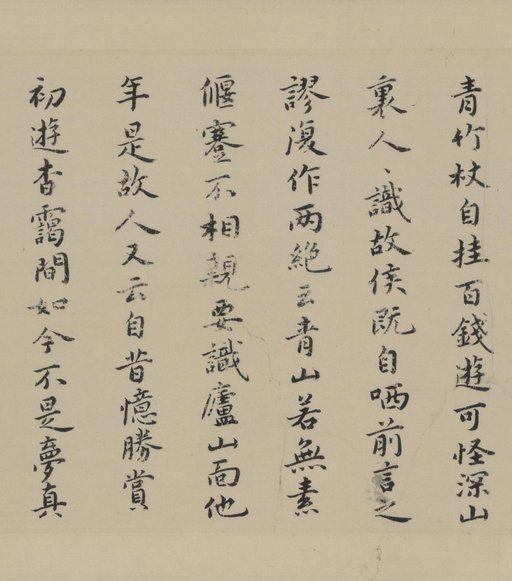 青竹杖自挂百錢遊可怪深山
裏人、識故侯既自哂前言之
謬復作兩絕云青山若無素
偃蹇不相親要識廬山面他
年是故人又云自昔憶勝賞
初遊杳靄間如今不是夢真